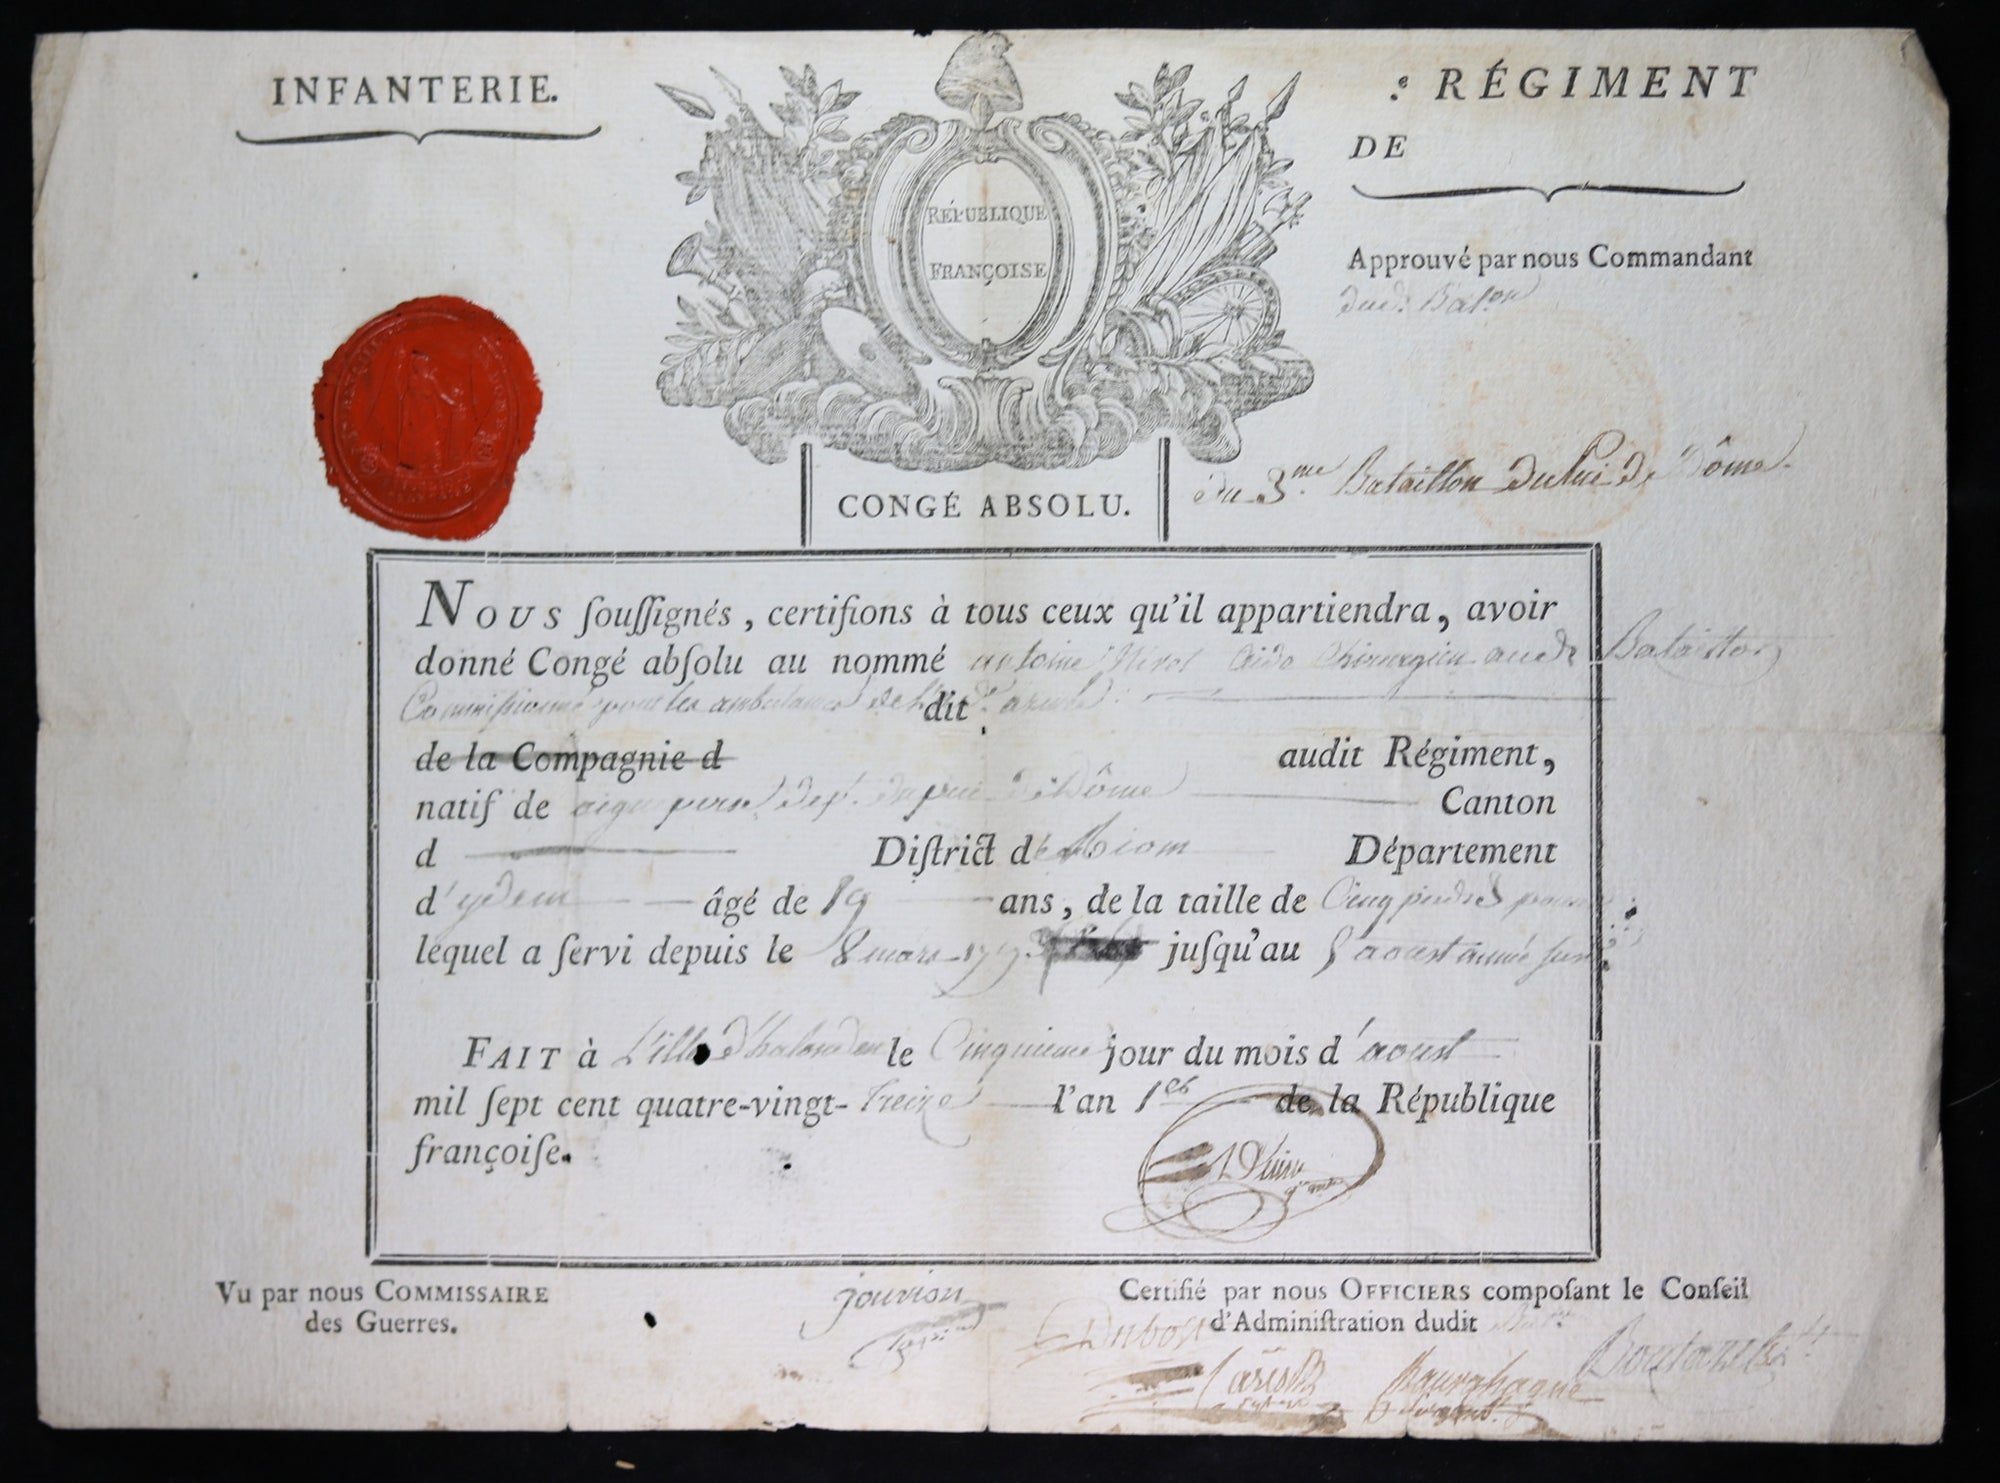 INFANTERIE.
RÉPUBLIQUE
FRANÇOISE
.e RÉGIMENT
DE
Approuvé par nous Commandant
dud. Bat.on
CONGÉ ABSOLU.
du 3.me Bataillon du Pui de Dôme.
NOUS ſouſſignés, certifions à tous ceux qu'il appartiendra, avoir
donné Congé abſolu au nommé antoine aide Chirurgien aud. Bataillon
Commissionné pour les ambulances de dit
de la Compagnie d audit Régiment,
natif de aigueperse dept. du pui de Dôme Canton
d Diſtrict de Riom Département
d'ydem âgé de 19 ans, de la taille de Cinq pieds 3 pouces
lequel a ſervi depuis le 8 mars 1793 juſqu'au 5 aoust année
FAIT à Lille le Cinquieme jour du mois d'aoust
mil ſept cent quatre-vingt-treize l'an 1er de la République
françoiſe.
Vu par nous COMMISSAIRE
des Guerres.
jouvion
Certifié par nous OFFICIERS compoſant le Conſeil
d'Adminiſtration dudit
Dubois
Boutarel